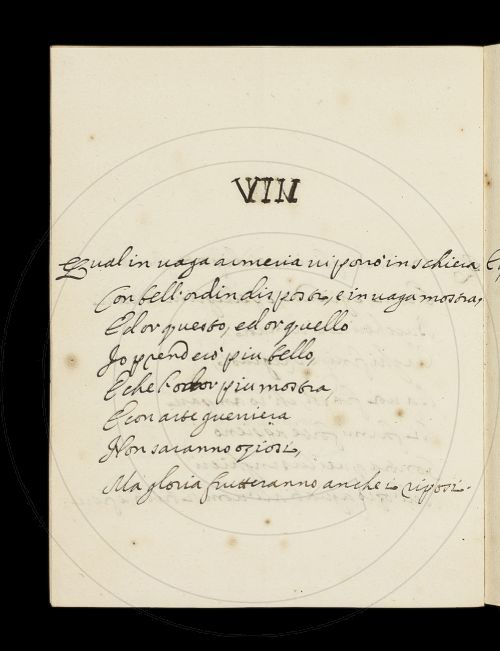 VIII
Qual in vaga armeria vi porrò in schiera
Con bell'ordin disposti, e in vaga mostra,
Ed or questo, ed or quello
Io prenderò più bello,
E che l'valor più mostra
E con arte guerriera
Non saranno oziosi,
Ma gloria frutteranno anche i riposi.